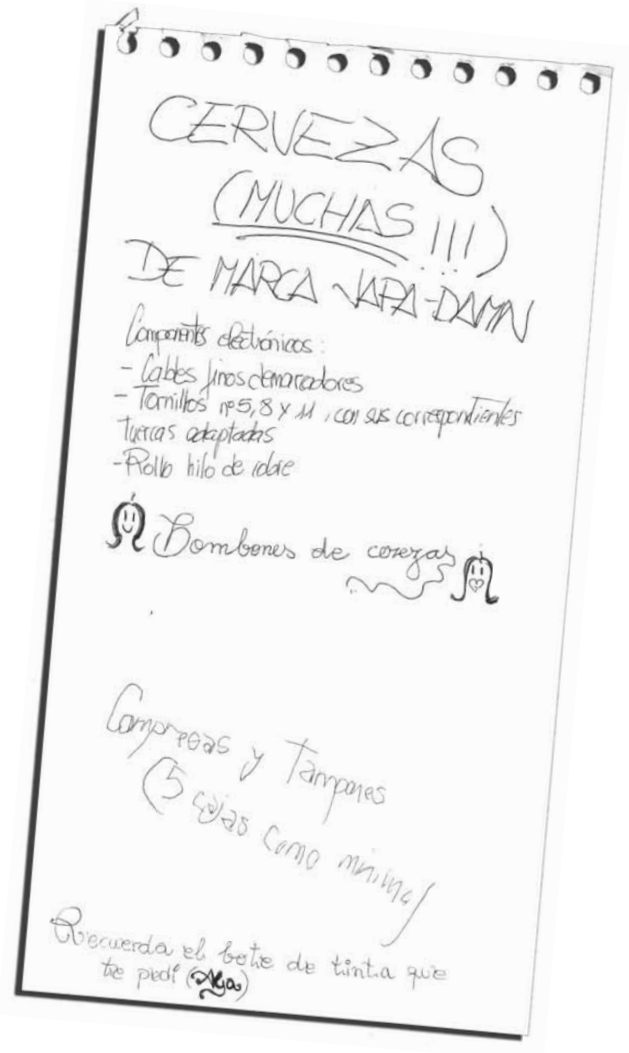 CERVEZAS
(MUCHAS !!!)
DE MARCA JAPA-DAMN
Componentes electrónicos:
- Cables finos demarcadores
- Tornillos nº5, 8 y 11, con sus correspondientes
tuercas adaptadas
- Rollo hilo de cobre
Bombones de cerezas
Compresas y Tampones
(5 cajas como mínimo)
Recuerda el bote de tinta que
te pedí